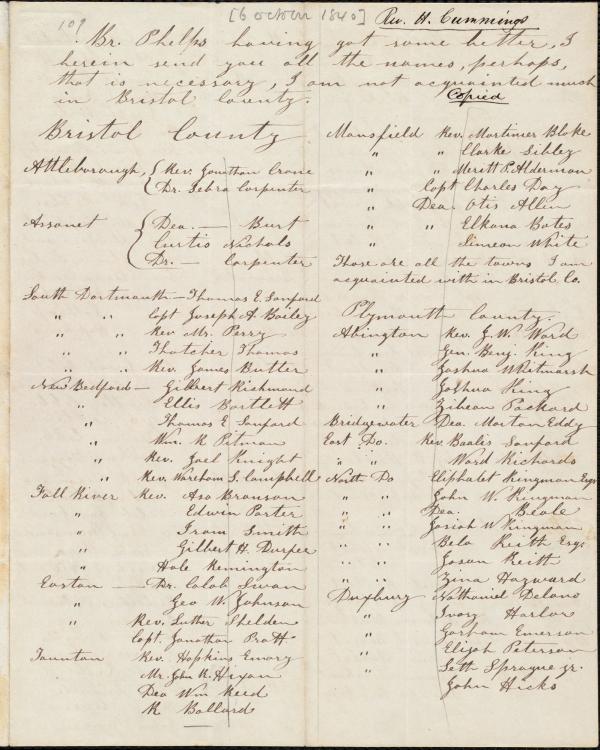 109
[6 october 1840]
Rev. H. Cummings
Br. Phelps having got some better, I
herein send you all the names, perhaps,
that is necessary, I am not acquainted much
in Bristol County.
Copied
Bristol County
Attleborough, Rev. Jonathan Crane
Dr. Zebra Carpenter
Assonet Dea. — Burt
Curtis Nichols
Dr. — Carpenter
South Dartmouth — Thomas E. Sanford
" " Capt Joseph A. Bailey
" " Rev Mr. Perry
" " Thatcher Thomas
" " Rev. James Butler
New Bedford — Gilbert Richmond
" Ellis Bartlett
" Thomas E. Sanford
" Wm. R Pitman
" Rev. Joel Knight
" Rev. Wareham S. Campbell
Fall River Rev. Asa Bronson
" Edwin Porter
" Iram Smith
" Gilbert H. Durfee
" Hale Remington
Easton — Dr. Caleb Swan
" Geo W. Johnson
" Rev. Luther Shelden
Capt. Jonathan Pratt
Taunton Rev. Hopkins Emory
Mr. John R. Hixon
Dea Wm Reed
R Ballard
Mansfield Rev. Mortimer Blake
" " Clarke Sibley
" " Meritt P. Alderman
" Capt Charles Day
" Dea. Otis Allen
" " Elkana Bates
" Simeon White
Those are all the towns I am
acquainted with in Bristol Co.
Plymouth County.
Abington Rev. J. W. Ward
" Gen. Benj. King
" Joshua Whitmarsh
" Joshua King
" Zibean Packard
Bridgewater Dea. Morton Eddy
East Do. Rev. Baalis Sanford
" " Ward Richards
North Do Eliphalet Kingman Esq
" " John W. Kingman
" " Dea. Beale
" " Josiah W Kingman
" " Bela Keith Esq.
" " Jason Keith
" " Zina Hayward
Duxbury Nathaniel Delano
" Ivory Harlow
" Gorham Emerson
" Elijah Peterson
" Seth Sprague jr.
John Hicks